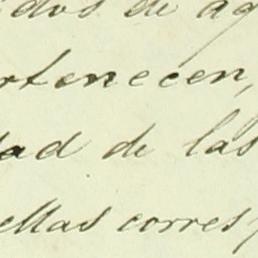 dos de aq
rtenecen,
dad de las
ellas corres